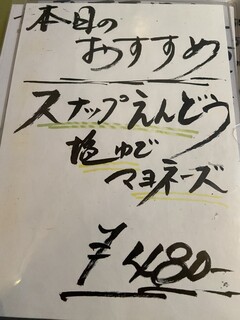 本日の
おすすめ
スナップえんどう
塩ゆで
マヨネーズ
¥480-